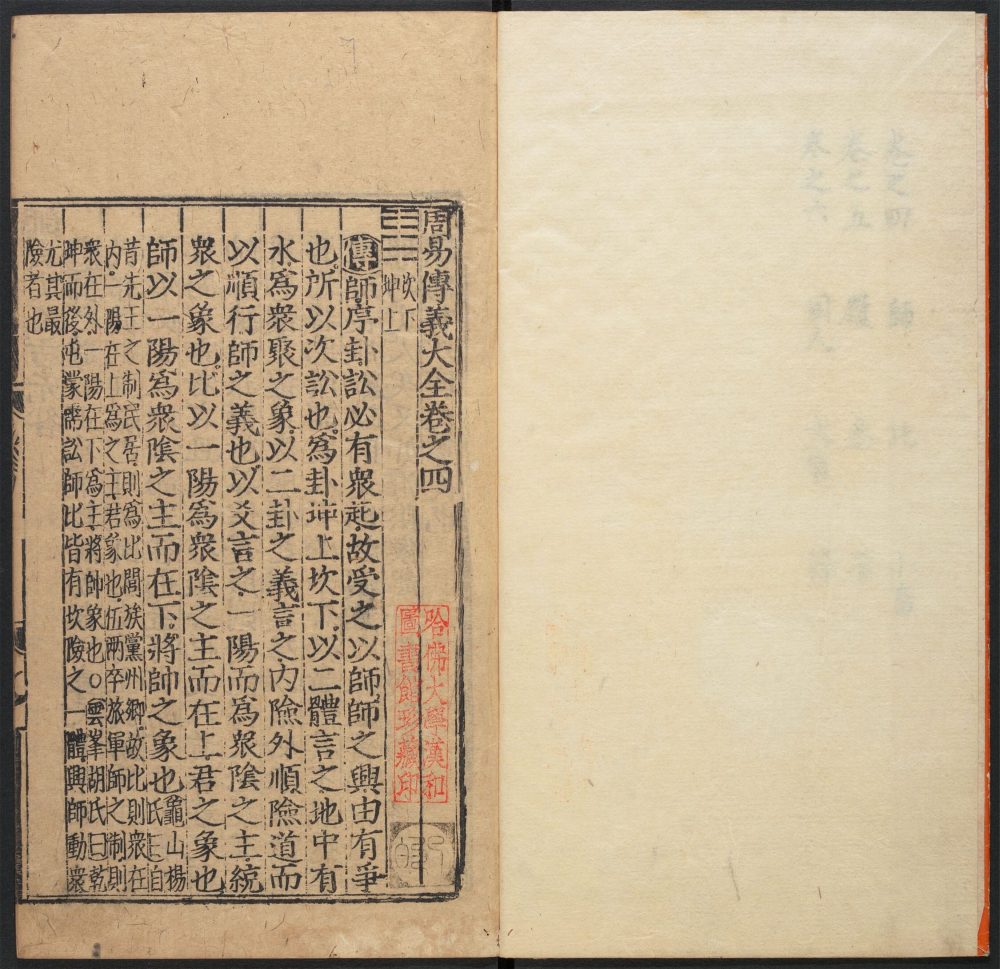 周易傳義大全卷之四
坎下
坤上
傳師序卦訟必有衆起故受之以師師之興由有爭
也所以次訟也爲卦坤上坎下以二體言之地中有
水爲衆聚之象以二卦之義言之內險外順險道而
以順行師之義也以爻言之一陽而爲衆陰之主統
衆之象也比以一陽爲衆陰之主而在上君之象也
師以一陽爲衆陰之主而在下將帥之象也
龜山楊
氏曰自
昔先王之制民居則爲比閭族黨州鄉故比則衆在
內一陽在上爲之主君象也伍兩卒旅軍師之制則
衆在外一陽在下爲主將帥象也○雲峯胡氏曰乾
坤而後屯蒙需訟師比皆有坎險之一體興師動衆
尤其最
險者也
哈佛大學漢和
圖書館珍藏印
卷之四 師 比
卷之五
卷之六 同人